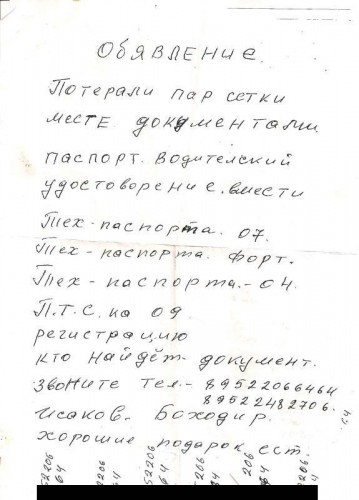 ОБЯВЛЕНИЕ.
Потерали пар сетки
месте документами
паспорт. водителский
удостоворение. вмести
Тех-паспорта. 07.
Тех-паспорта. Форт.
Тех-паспорта.-04.
П.Т.С. на 09
регистрацию
кто найдёт документ.
звоните тел.- 89522066464
89522482706.
Исаков. Боходир.
хорошие подарок ест.